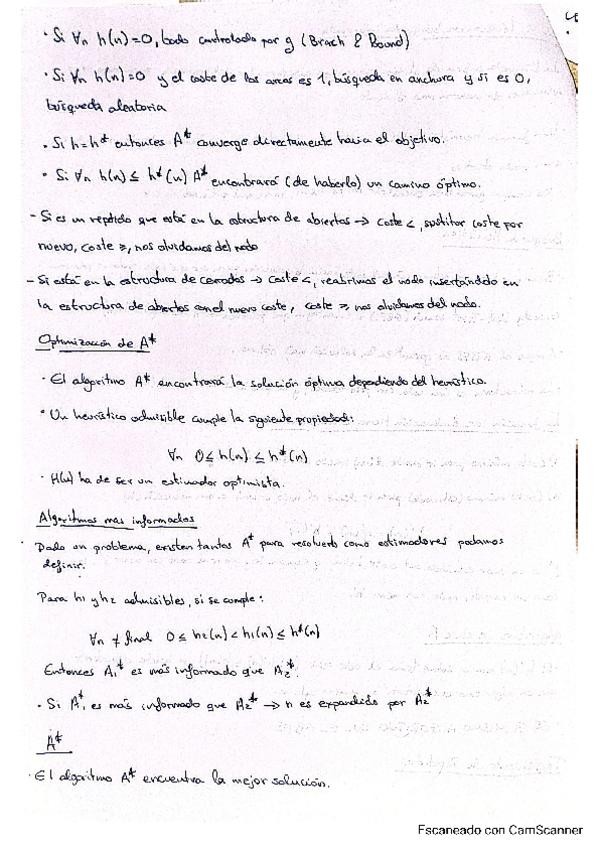 · Si ∀n h(n)=0, todo controlado por g (Brach & Bound)
· Si ∀n h(n)=0 y el coste de los arcos es 1, búsqueda en anchura y si es 0,
búsqueda aleatoria
· Si h=h* entonces A* converge directamente hacia el objetivo.
· Si ∀n h(n) ≤ h*(n) A* encontrará (de haberlo) un camino óptimo.
- Si es un repetido que está en la estructura de abiertos → coste <, sustituir coste por
nuevo, coste ≥, nos olvidamos del nodo
- Si está en la estructura de cerrados → coste <, reabrimos el nodo insertándolo en
la estructura de abiertos con el nuevo coste, coste ≥ nos olvidamos del nodo.
Optimización de A*
· El algoritmo A* encontrará la solución óptima dependiendo del heurístico.
· Un heurístico admisible cumple la siguiente propiedad:
∀n 0 ≤ h(n) ≤ h*(n)
· H(n) ha de ser un estimador optimista.
Algoritmos mas informados
Dado un problema, existen tantos A* para resolverlo como estimadores podamos
definir.
Para h1 y h2 admisibles, si se cumple:
∀n ≠ final 0 ≤ h2(n) < h1(n) ≤ h*(n)
Entonces A1* es más informado que A2*.
· Si A1* es más informado que A2* → n es expandido por A2*
A*
· El algoritmo A* encuentra la mejor solución.
Escaneado con CamScanner